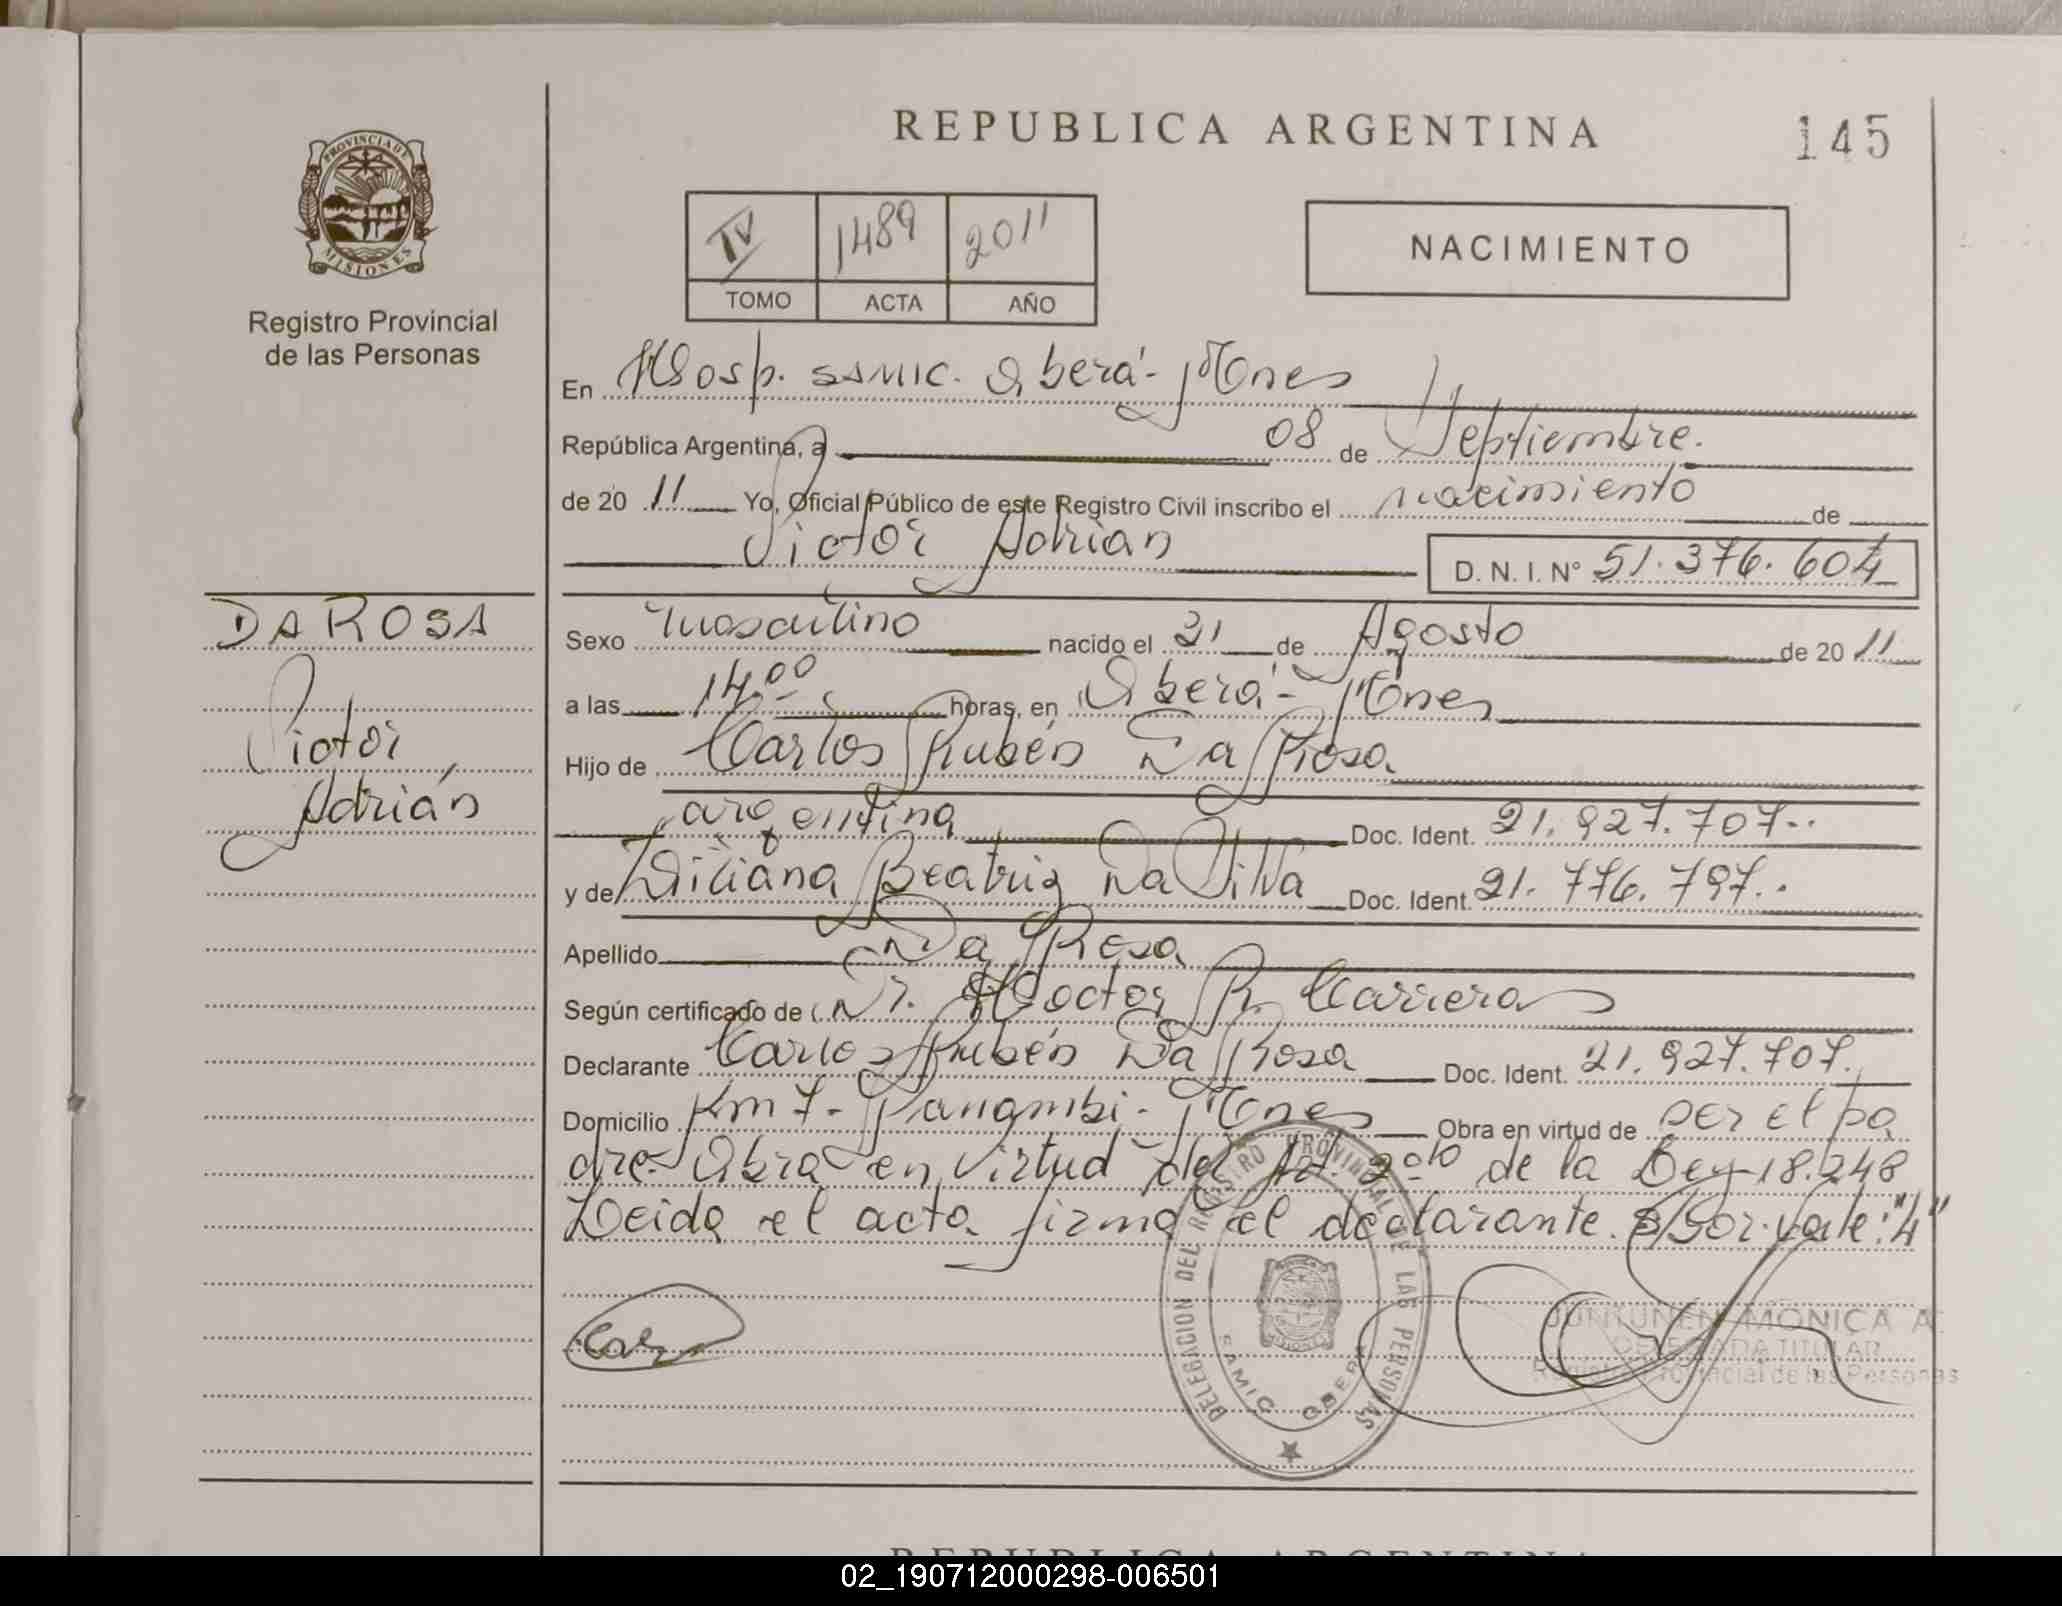 REPUBLICA ARGENTINA
145
PROVINCIA DE
MISIONES
Registro Provincial
de las Personas
IV 1489 2011
TOMO ACTA AÑO
NACIMIENTO
En Hosp. SAMIC. Oberá - Mnes
República Argentina, a 08 de Septiembre.
de 20 11 Yo, Oficial Público de este Registro Civil inscribo el nacimiento de
Victor Adrian D. N. I. N° 51.376.604
DA ROSA
Victor
Adrián
Sexo masculino nacido el 21 de Agosto de 20 11
a las 14.00 horas, en Oberá - Mnes
Hijo de Carlos Rubén Da Rosa
argentina Doc. Ident. 21.927.707..
y de Liliana Beatriz Da Silva Doc. Ident. 21.776.797..
Apellido Da Rosa
Según certificado de Dr. Hector R. Carrera
Declarante Carlos Rubén Da Rosa Doc. Ident. 21.927.707.
Domicilio Km 7 - Panambi - Mnes Obra en virtud de per el pa
dre. Obra en virtud del Art. 2° de la Ley 18.248
Leida el acta firma el declarante. S/Bor. vale: "4"
DELEGACION DEL REGISTRO PROVINCIAL DE LAS PERSONAS
SAMIC OBERA
JUNTUNEN MONICA A.
DELEGADA TITULAR
Registro Provincial de las Personas
REPUBLICA ARGENTINA
02_190712000298-006501